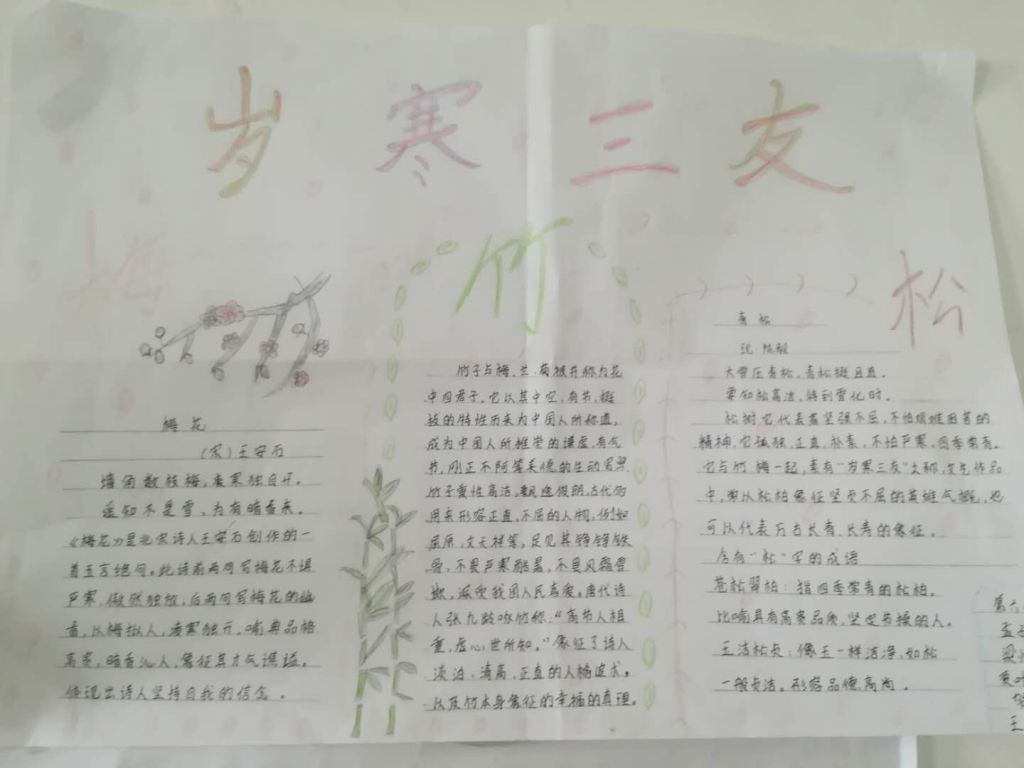 岁寒三友
梅
竹
松
梅花
(宋)王安石
墙角数枝梅,凌寒独自开。
遥知不是雪,为有暗香来。
《梅花》是北宋诗人王安石创作的一
首五言绝句。此诗前两句写梅花不惧
严寒,傲然独放,后两句写梅花的幽
香,以梅拟人,凌寒独开,喻典品格
高贵,暗香沁人,象征其才气谯谥。
体现出诗人坚持自我的信念。
竹子与梅、兰、菊被并称为花
中四君子,它以其中空、有节、挺
拔的特性历来为中国人所称道,
成为中国人所推崇的谦虚、有气
节、刚正不阿等美德的生动写照
竹子秉性高洁,超逸俊朗,古代的
用来形容正直、不屈的人物,例如
屈原、文天祥等,足见其铮铮铁
骨,不畏严寒酷暑、不畏风霜雪
深受我国人民喜爱。唐代诗
人张九龄咏竹称,“高节人相
重,虚心世所知。”象征了诗人
淡泊、清高、正直的人格追求。
以及竹本身象征的幸福的真理。
青松
陈毅
大雪压青松,青松挺且直。
要知松高洁,待到雪化时。
松树它代表着坚强不屈,不怕艰难困苦的
精神,它顽强、正直、朴素、不怕严寒、四季常青。
它与竹、梅一起,素有“岁寒三友”之称,文艺作品
中,常以松柏象征坚贞不屈的英雄气概,也
可以代表万古长青、长寿的象征。
含有“松”字的成语
苍松翠柏:指四季常青的松柏。
比喻具有高贵品质、坚定节操的人。
玉洁松贞:像玉一样洁净,如松
一般贞洁。形容品德高尚。
第六
孟子
王